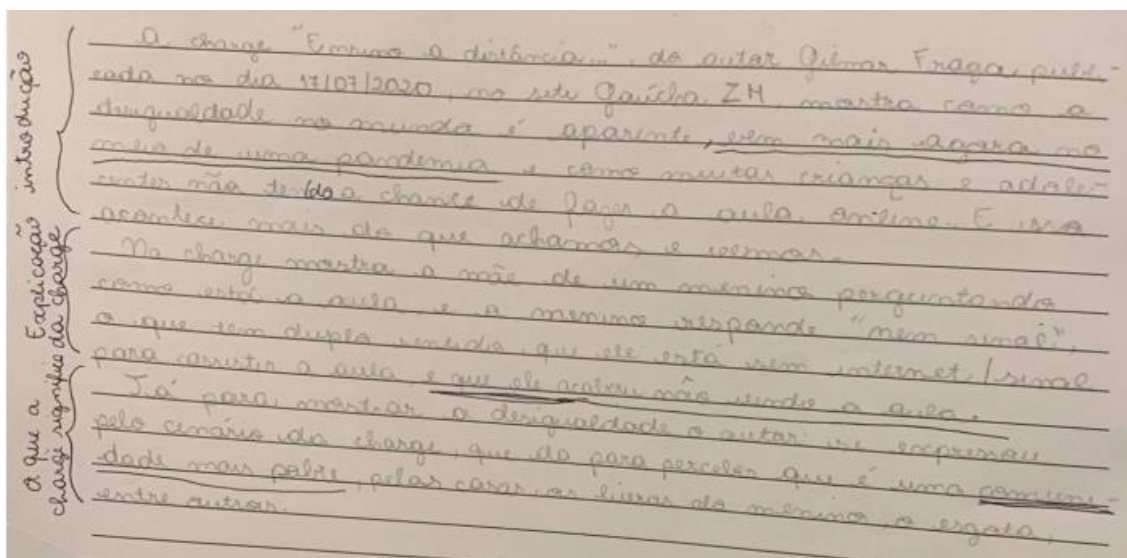 introdução
A charge "Ensino a distância...", do autor Gilmar Fraga, publi-
cada no dia 17/07/2020, no site Gaúcha ZH, mostra como a
desigualdade no mundo é aparente, bem mais agora no
meio de uma pandemia e como muitas crianças e adoles-
centes não tendo a chance de fazer a aula online. E isso
acontece mais do que achamos e vemos.
Explicação
da charge
Na charge mostra a mãe de um menino perguntando
como está a aula, e o menino responde "nem sinal",
o que tem duplo sentido, que ele está sem internet/sinal
para assistir a aula, e que ele acabou não vendo a aula.
O que a
charge significa
Já para mostrar a desigualdade o autor se expressou
pelo cenário da charge, que da para perceber que é uma comuni-
dade mais pobre, pelas casas, os livros do menino, o esgoto,
entre outros.